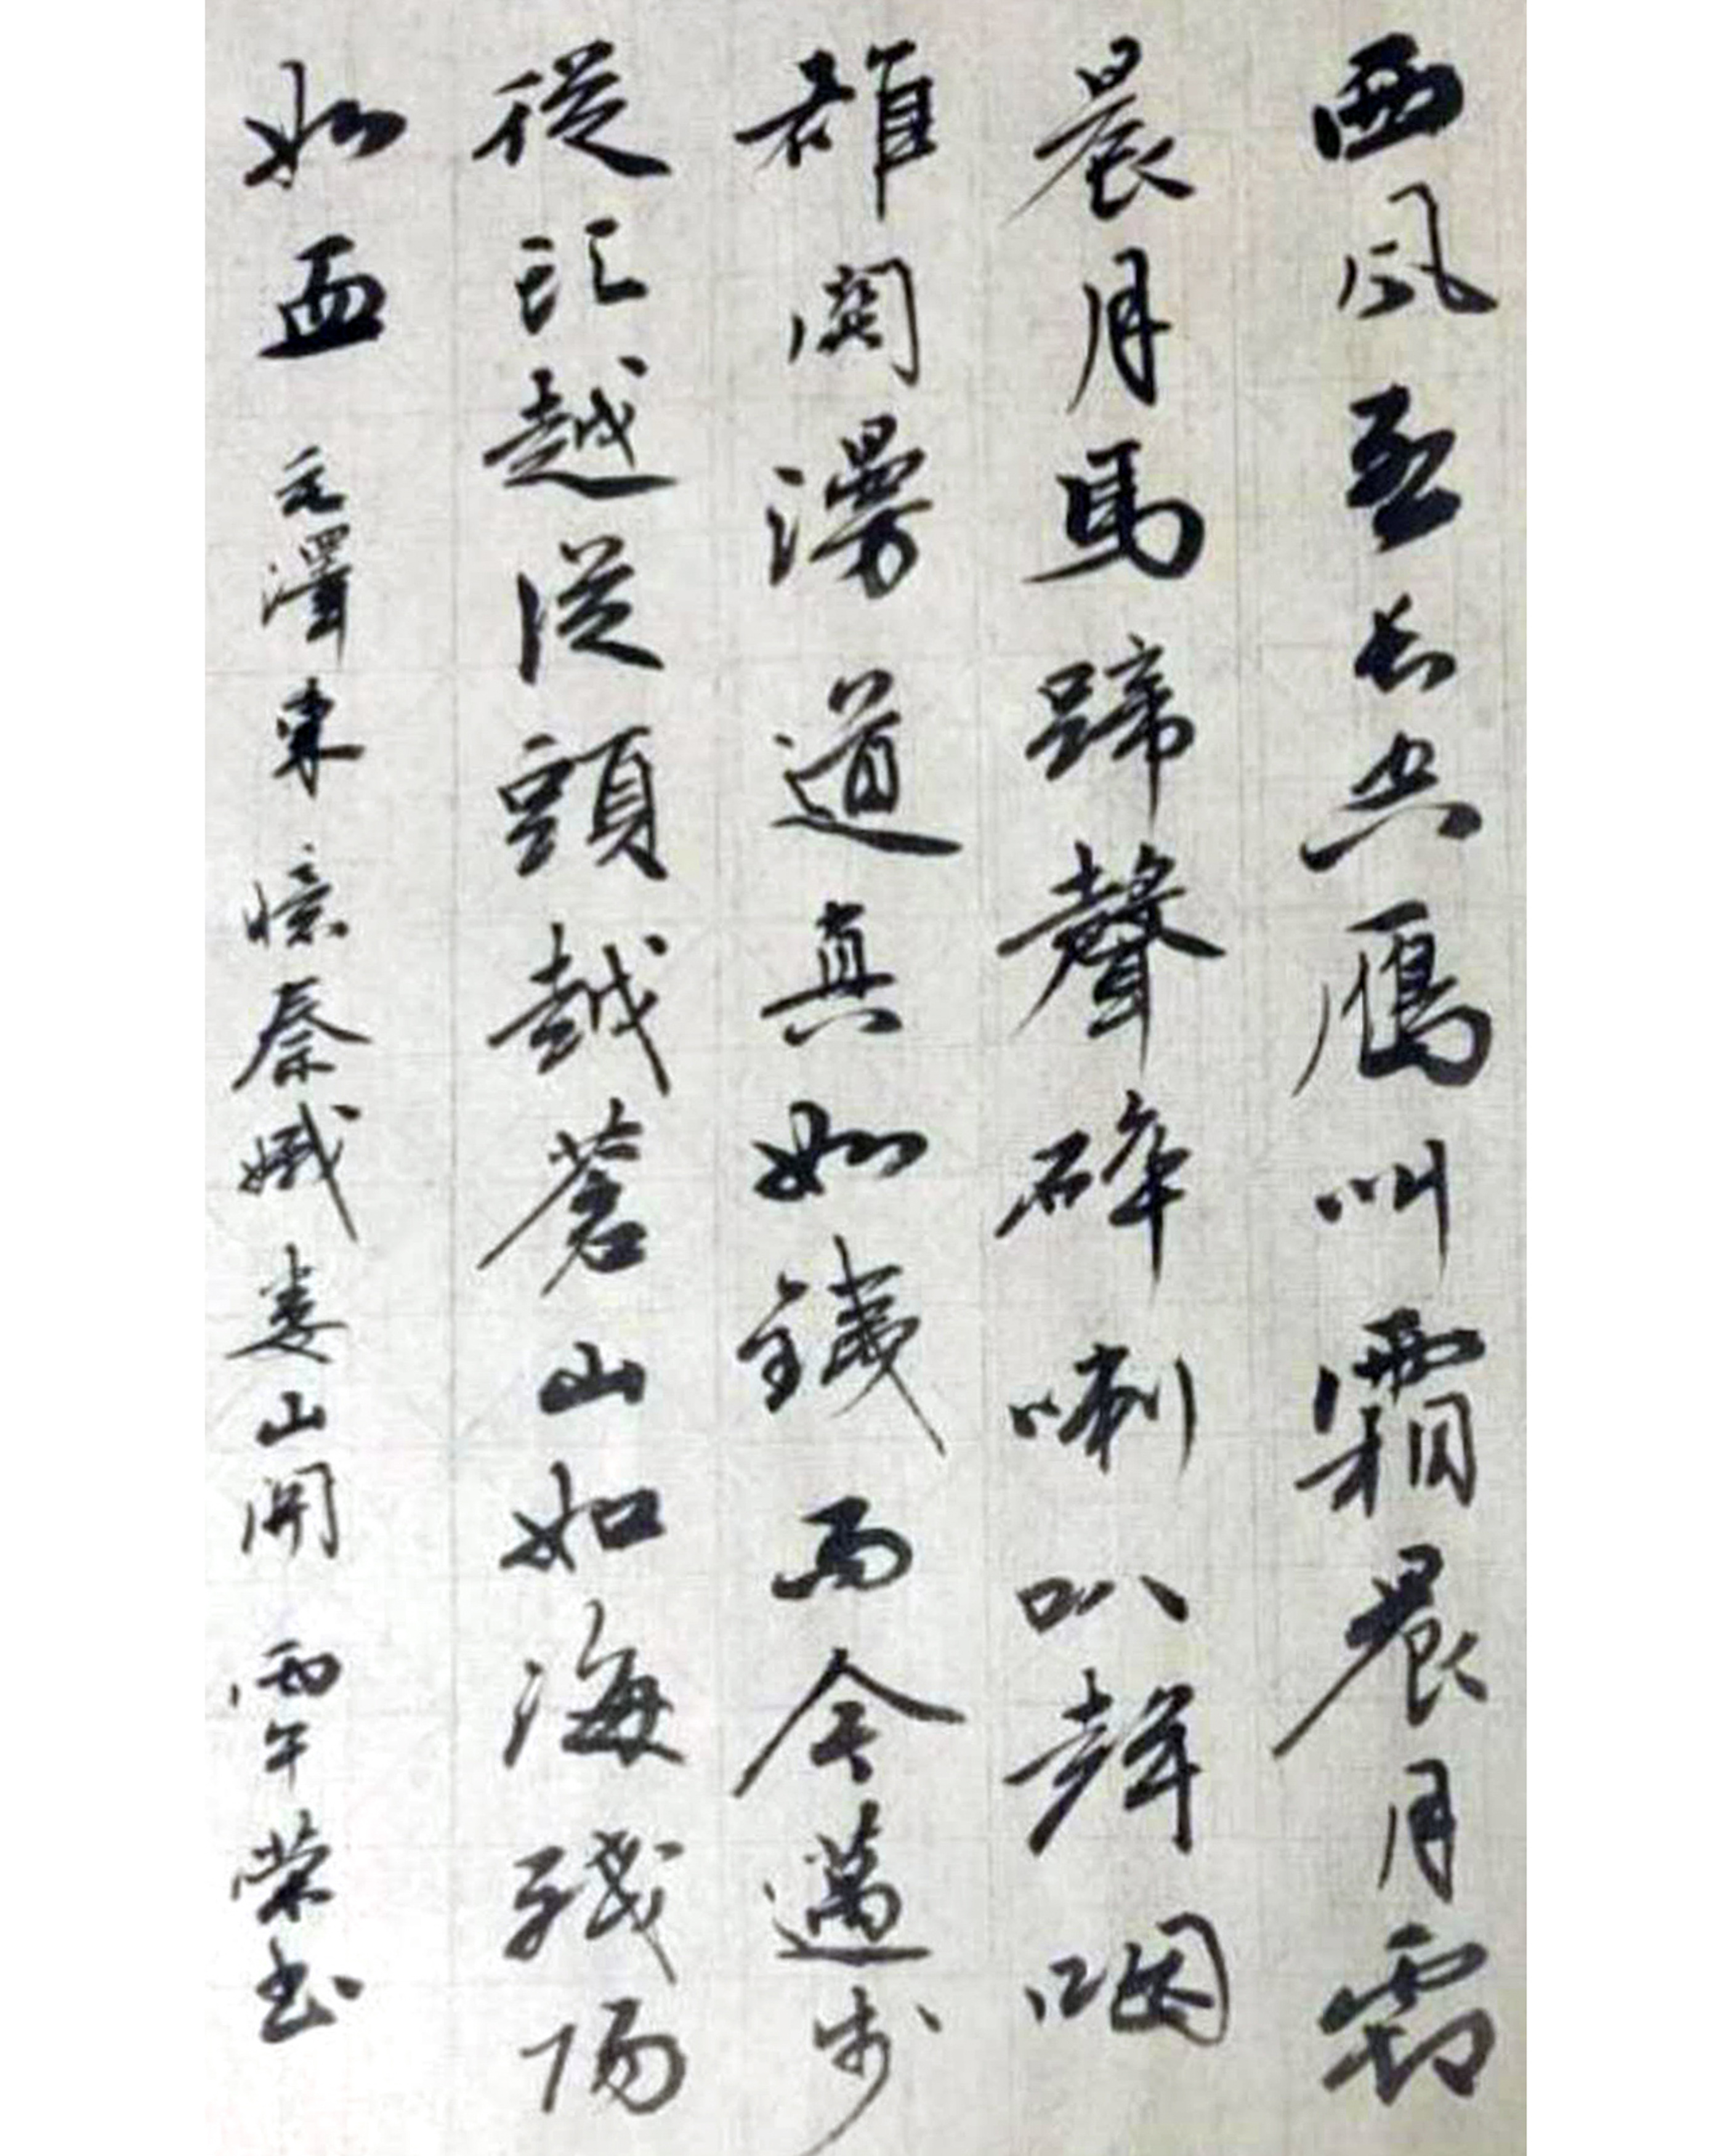 西風烈長空鴈叫霜晨月霜
晨月馬蹄聲碎喇叭聲咽
雄關漫道真如鐵而今邁步
從頭越從頭越蒼山如海殘陽
如血 毛澤東憶秦娥婁山關 丙午榮書